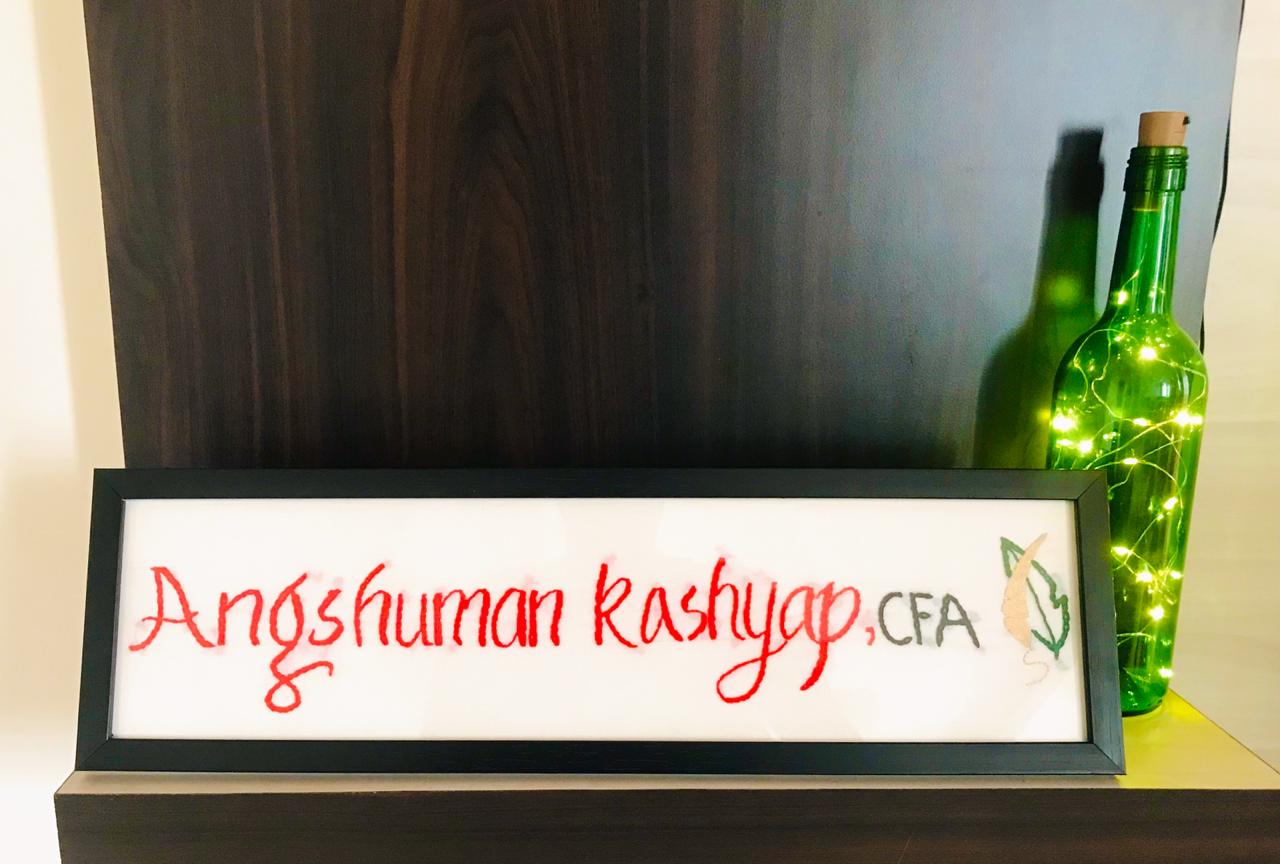 Angshuman Kashyap, CFA